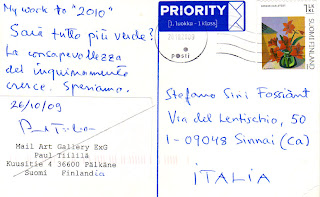 My work to "2010"
Sarà tutto più verde?
La consapevolezza
del inquinamento
cresce. Speriamo.
26/10/09
Mail Art Gallery ExG
Paul Tiililä
Kuusitie 4 36600 Pälkäne
Suomi Finlandia
PRIORITY
1. luokka - 1 klass
posti
1 LK
KL
SUOMI FINLAND
Stefano Sini Fossiant
Via del Lentischio, 50
I-09048 Sinnai (Ca)
ITALIA